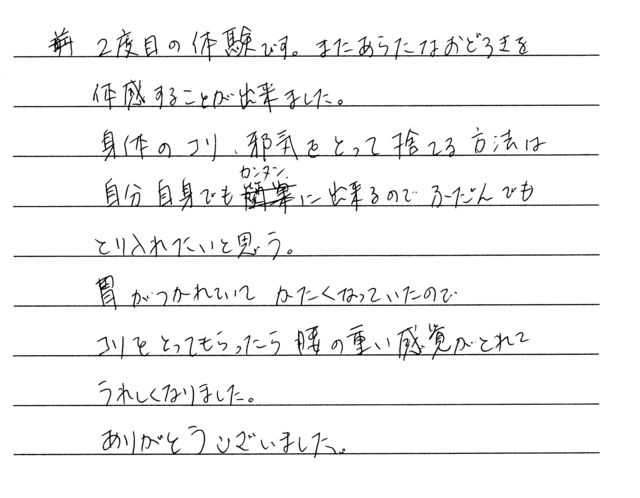 2度目の体験です。またあらたなおどろきを
体感することが出来ました。
身体のコリ、邪気をとって捨てる方法は
自分自身でもカンタンに出来るのでふだんでも
とり入れたいと思う。
胃がつかれていてかたくなっていたので
コリをとってもらったら腰の重い感覚がとれて
うれしくなりました。
ありがとうございました。